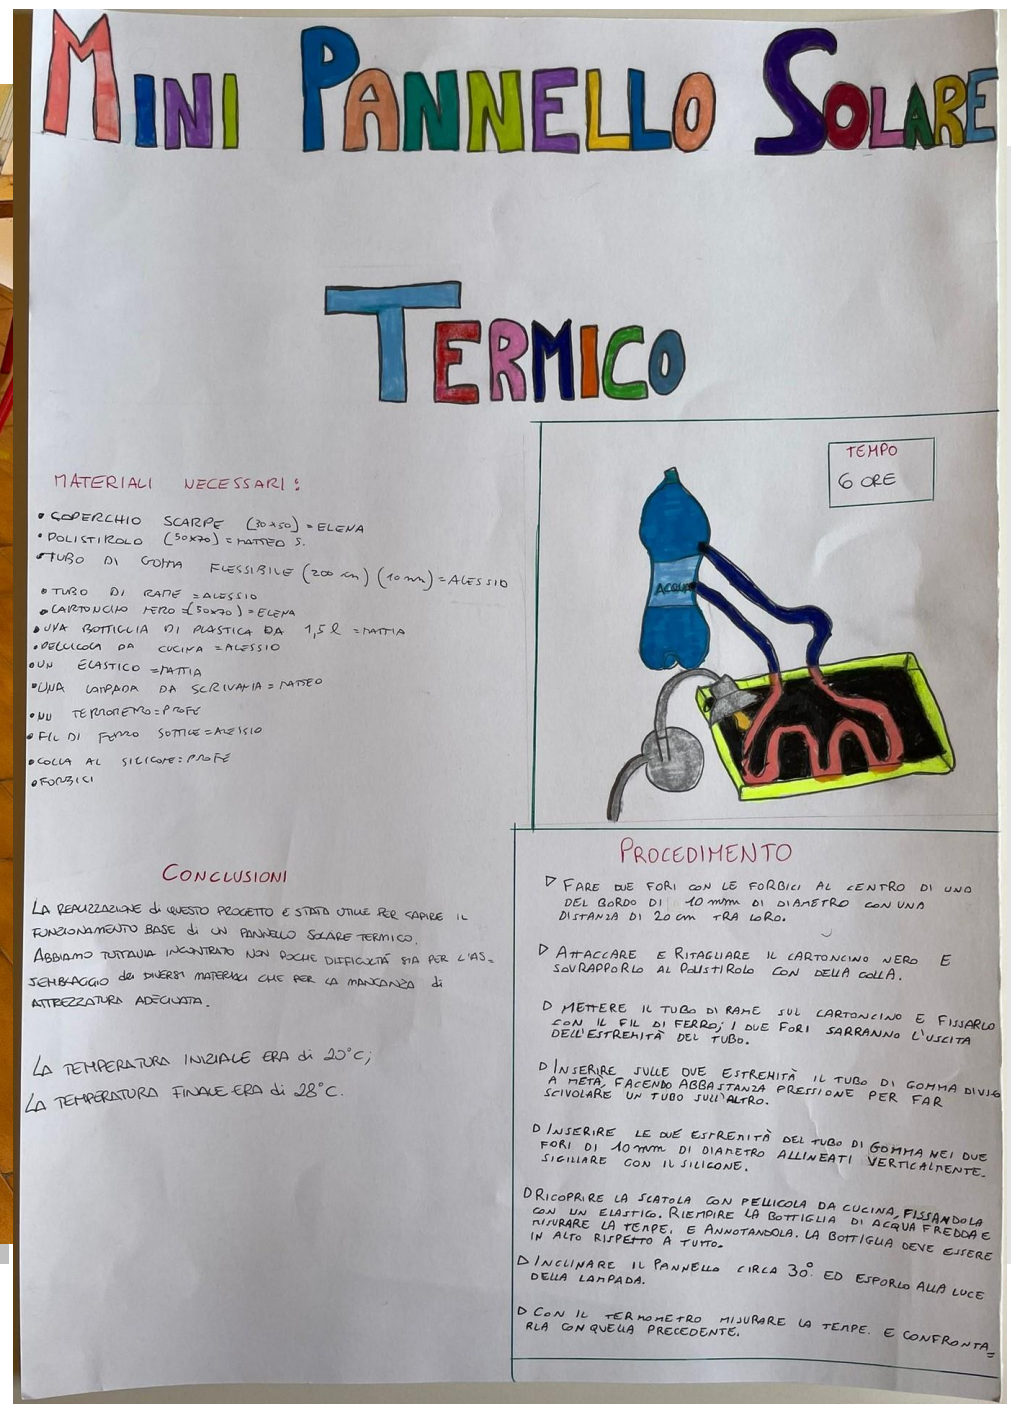 MINI PANNELLO SOLARE
TERMICO
MATERIALI NECESSARI:
• COPERCHIO SCARPE (30x50) = ELENA
• POLISTIROLO (50x70) = MATTEO S.
• TUBO DI GOMMA FLESSIBILE (200 cm) (10 mm) = ALESSIO
• TUBO DI RAME = ALESSIO
• CARTONCINO NERO = (50x70) = ELENA
• UNA BOTTIGLIA DI PLASTICA DA 1,5 l = MATTIA
• PELLICOLA DA CUCINA = ALESSIO
• UN ELASTICO = MATTIA
• UNA LAMPADA DA SCRIVANIA = MATTEO
• UN = PROFE
• FIL DI FERRO SOTTILE = ALESSIO
• COLLA AL SILICONE = PROFE
• FORBICI
TEMPO
6 ORE
ACQUA
CONCLUSIONI
LA REALIZZAZIONE di QUESTO PROGETTO E STATA UTILE PER CAPIRE IL
FUNZIONAMENTO BASE di UN PANNELLO SOLARE TERMICO.
ABBIAMO TUTTAVIA INCONTRATO NON POCHE DIFFICOLTÀ SIA PER L'AS-
SEMBLAGGIO dei DIVERSI MATERIALI CHE PER LA MANCANZA di
ATTREZZATURA ADEGUATA.
LA TEMPERATURA INIZIALE ERA di 20°C;
LA TEMPERATURA FINALE ERA di 28°C.
PROCEDIMENTO
▷ FARE DUE FORI CON LE FORBICI AL CENTRO DI UNO
DEL BORDO DI 10 mm DI DIAMETRO CON UNA
DISTANZA DI 20 cm TRA LORO.
▷ ATTACCARE E RITAGLIARE IL CARTONCINO NERO E
SOVRAPPORLO AL POLISTIROLO CON DELLA COLLA.
▷ METTERE IL TUBO DI RAME SUL CARTONCINO E FISSARLO
CON IL FIL DI FERRO; I DUE FORI SARRANNO L'USCITA
DELL'ESTREMITÀ DEL TUBO.
▷ INSERIRE SULLE DUE ESTREMITÀ IL TUBO DI GOMMA DIVISO
A METÀ, FACENDO ABBASTANZA PRESSIONE PER FAR
SCIVOLARE UN TUBO SULL'ALTRO.
▷ INSERIRE LE DUE ESTREMITÀ DEL TUBO DI GOMMA NEI DUE
FORI DI 10 mm DI DIAMETRO ALLINEATI VERTICALMENTE.
SIGILLARE CON IL SILICONE.
▷ RICOPRIRE LA SCATOLA CON PELLICOLA DA CUCINA, FISSANDOLA
CON UN ELASTICO. RIEMPIRE LA BOTTIGLIA DI ACQUA FREDDA E
MISURARE LA TEMPE. E ANNOTANDOLA. LA BOTTIGLIA DEVE ESSERE
IN ALTO RISPETTO A TUTTO.
▷ INCLINARE IL PANNELLO CIRCA 30° ED ESPORLO ALLA LUCE
DELLA LAMPADA.
▷ CON IL TERMOMETRO MISURARE LA TEMPE. E CONFRONTA=
RLA CON QUELLA PRECEDENTE.